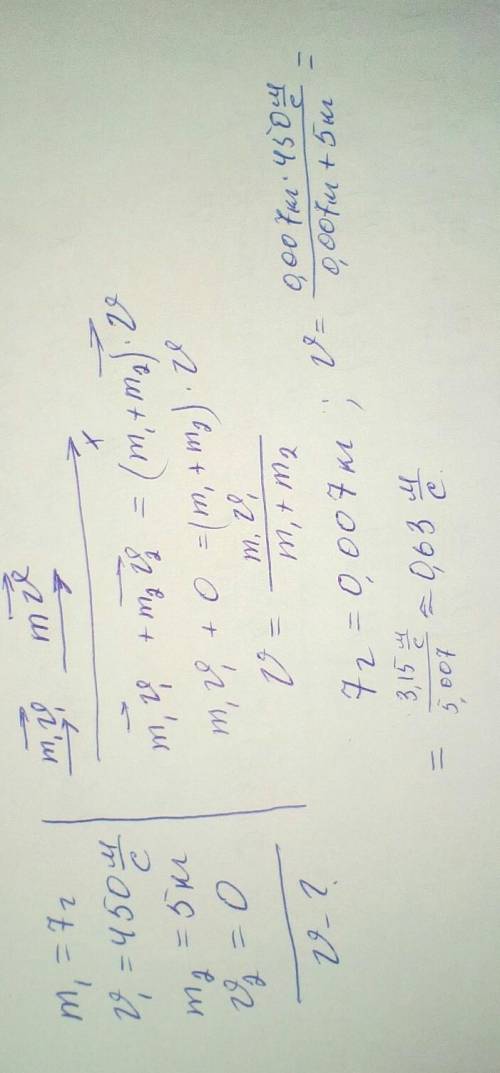 m₁ = 7г
v₁ = 450 м/с
m₂ = 5 кг
v₂ = 0
v - ?
m₁v₁ mv
x
m₁v₁ + m₂v₂ = (m₁ + m₂) · v
m₁v₁ + 0 = (m₁ + m₂) · v
v = m₁v₁ / m₁ + m₂
7г = 0,007 кг ; v = 0,007 кг · 450 м/с / 0,007 кг + 5 кг =
= 3,15 м/с / 5,007 ≈ 0,63 м/с